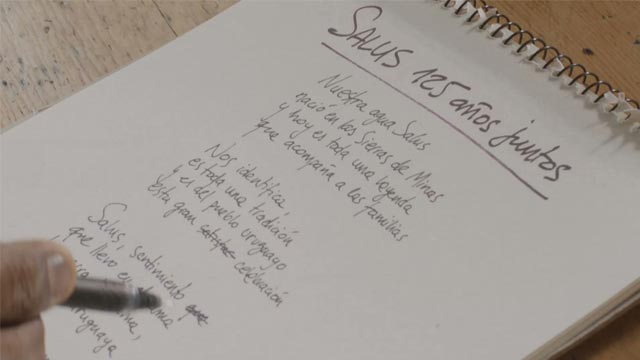 SALUS 125 años juntos
Nuestra agua Salus
nació en las Sierras de Minas
y hoy es toda una leyenda
que acompaña a las familias
Nos identifica,
es toda una tradición
y es del pueblo uruguayo
esta gran celebración
Salus, sentimiento que
que llevo en
uruguaya